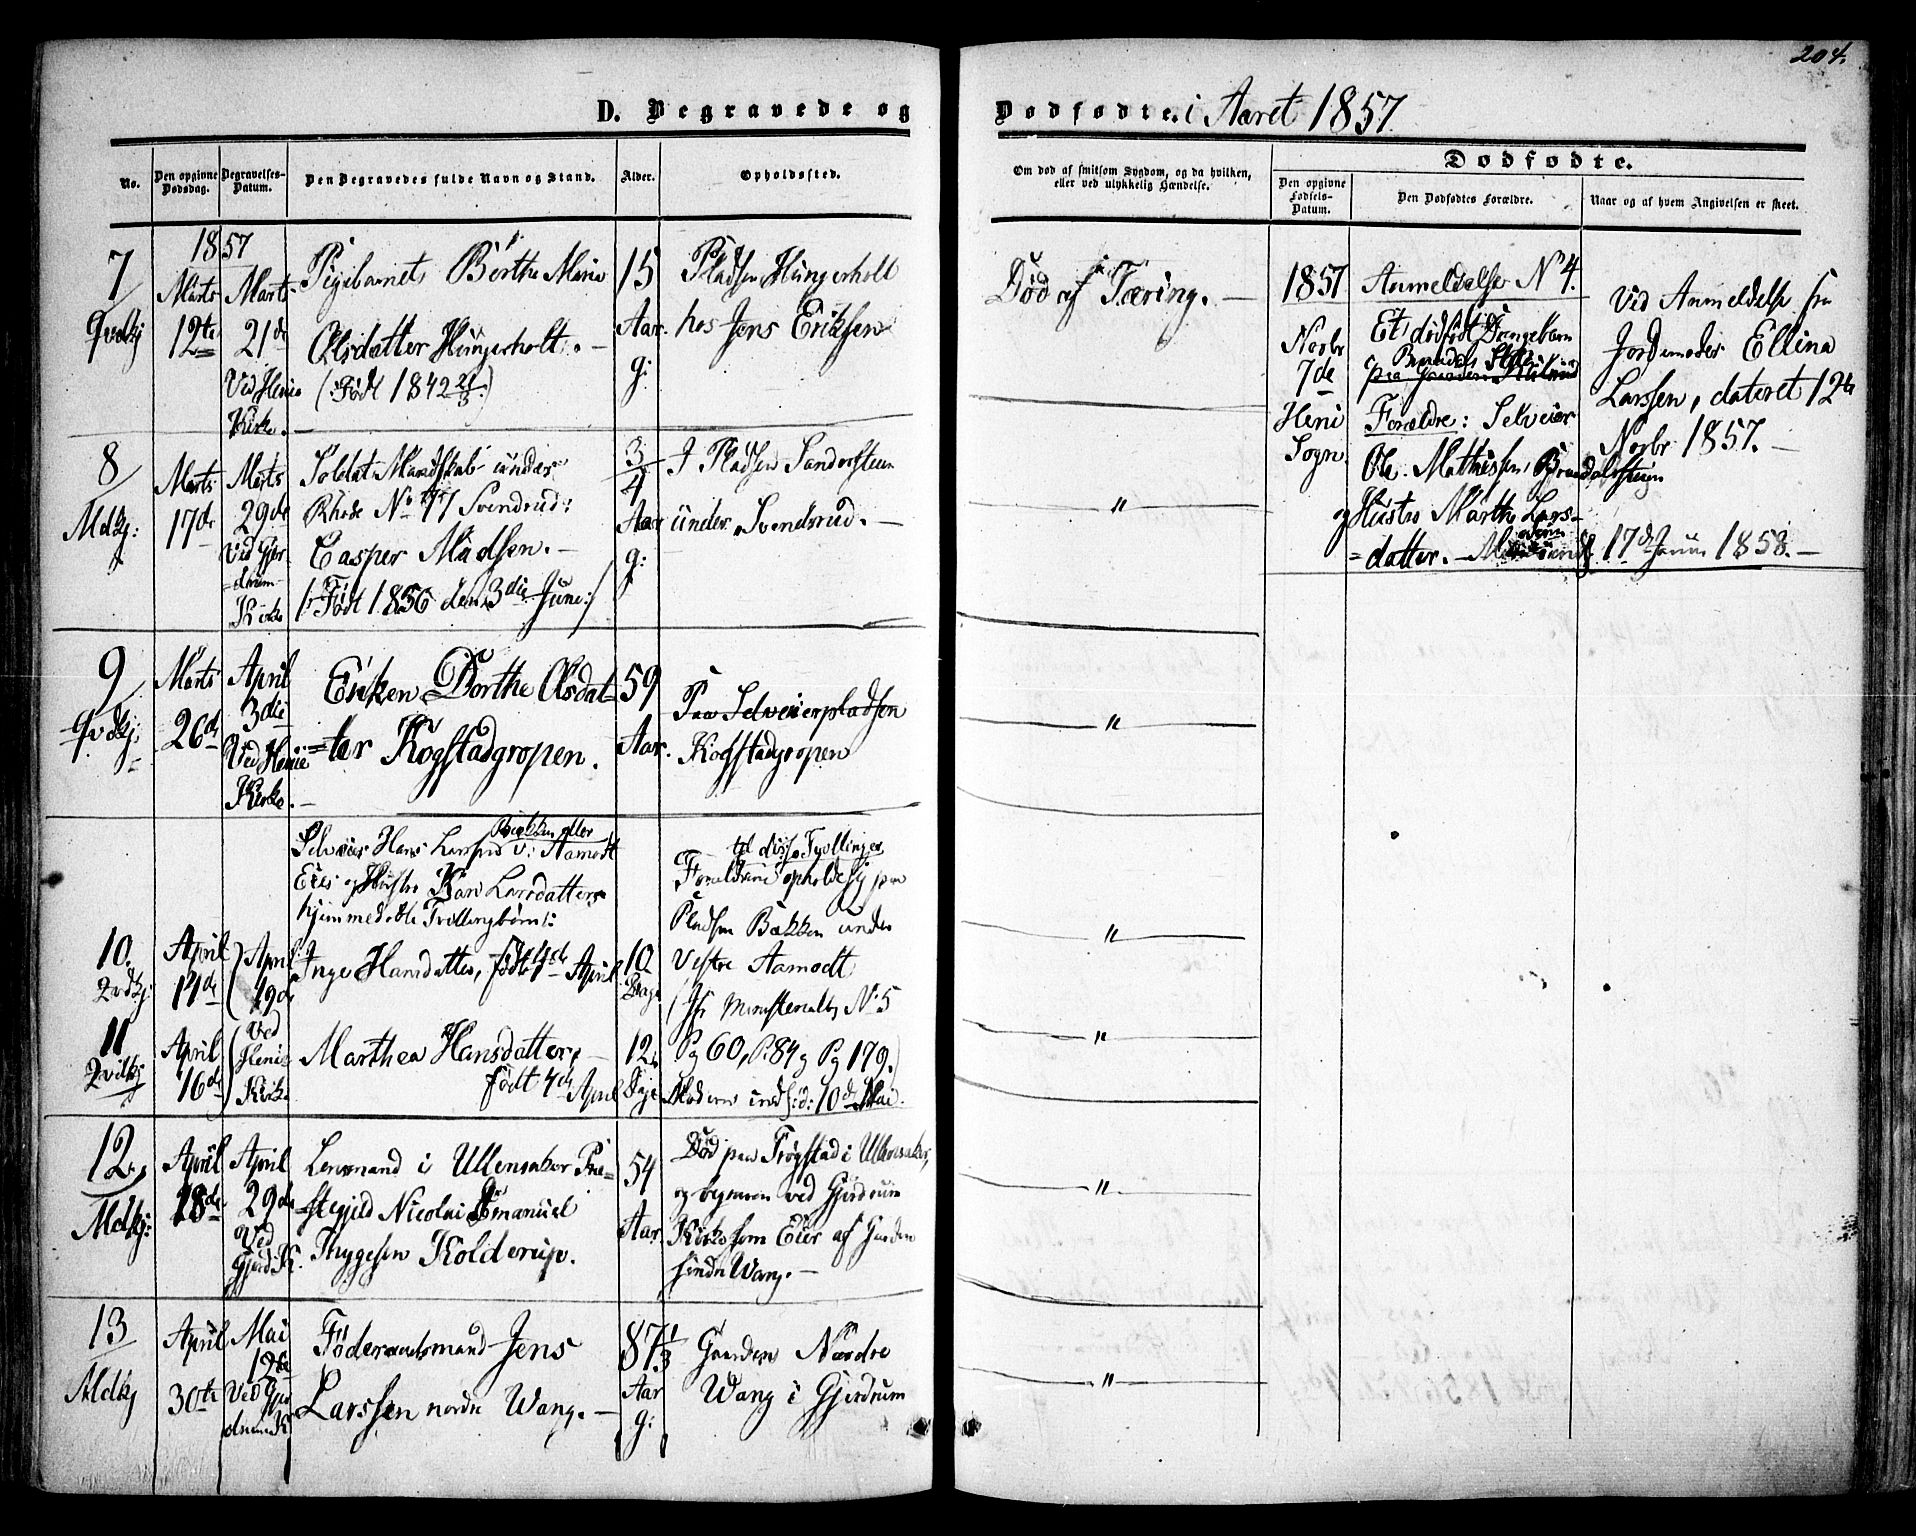 204.
D. Begravede og Dødfødte. i Aaret 1857.
No.
Den opgivne Dødsdag.
Begravelses-Datum.
Den Begravedes fulde Navn og Stand.
Alder.
Opholdssted.
Om død af smitsom Sygdom, og da hvilken,
eller ved ulykkelig Hændelse.
Dødfødte.
Den opgivne Fødsels-Datum.
Den Dødfødtes Forældre.
Naar og af hvem Angivelsen er skeet.
1857
7
Qvdkj
Marts
12te
Marts
21de
Ved Henie
Kirke.
Pigebarnet Berthe Maria
Olsdatter Hungerholt.
(: Født 1842 21/3 :)
15
Aar.
g:
Pladsen Hungerholt
hos Jens Eriksen
Død af Tæring.
8
Mdkj:
Marts
17de
Marts
29de
Ved Gjer
=drum
Kirke
Soldat Mandskab under
Rhode No 77 Svendsrud:
Casper Madsen.
/: Født 1856 den 3die Juni :/
3/4
Aar
g:
I Pladsen Sandersteen
under Svendsrud.
"
9
Qvdkj.
Marts
26de
April
3die
Ved Henie
Kirke.
Enken Dorthe Olsdat-
=ter Kogstadgropen.
59
Aar.
Paa Selveierpladsen
Kogstadgropen
"
Bækken eller
Selveier Hans Larsen v: Aamodt
Eies og Hustro Kari Larsdatters
hjemmedøbte Tvillingbørn:
til disse Tvillinger
Forældrene opholde sig paa
Pladsen Bækken under
Vestre Aamodt
(Jfr Ministerialb. No 5
Pg 60, P. 84 og Pg 179.)
10.
Qvdkj.
April
14de
April
19de
Inger Hansdatter, født 4de April
10
Dage
"
11
Qvdkj
April
16de
Ved
Henie
Kirke
Marthea Hansdatter,
født 4de April
12
Dage
10de Mai.
"
12
Mdkj:
April
18de
April
29de
Ved
Gjerd. K.
Lensmand i Ullensaker Præ=
stegjeld Nicolai Emanuel
Thygesen Kolderup.
54
Aar.
Død paa Frogstad i Ullensaker,
og begraven ved Gjerdrum
Kirke som Eier af Gaarden
søndre Wang.
"
13
Mdkj
April
30te
Mai
12te
Ved Gjer
drum K.
Föderaadsmand Jens
Larssen nordre Wang.
87 1/3
Aar
g:
Gaarden Nordre
Wang i Gjerdrum
"
1857
Novbr
7de
Heni
Sogn
Anmeldelse No 4.
Et dødfødt Drengebarn
paa Gaarden
Forældre: Selveier
Ole Mathisen Brandalsteien
og Hustro Marthe Lars-
=datter.
Ved Anmeldelse fra
Jordemoder Ellina
Larssen, dateret 12te
Novbr 1857.
17de Januar 1858.